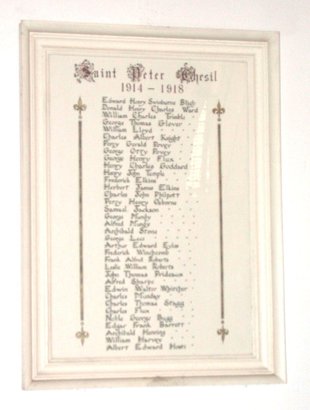 Saint Peter Chesil
1914 – 1918
Edward Henry Swinburne
Donald Henry Charles Ward
William Charles Trimble
George Thomas Glover
William Lloyd
Charles Albert Knight
Percy Gerald Povey
George Orry Povey
George Henry Flux
Henry Charles Goddard
Henry John Temple
Frederick Elkins
Herbert James Elkins
Charles John Philpott
Percy Henry Osborne
Samuel Jackson
George Mundy
Alfred Mundy
Archibald Stone
George
Arthur Edward Eyles
Frederick Winchcomb
Frank Alfred Roberts
Leslie William Roberts
John Thomas Prideaux
Alfred Sharpe
Edwin Walter Whitcher
Charles Munday
Charles Thomas Stagg
Charles Flux
Noble George Bugg
Edgar Frank Barrett
Archibald Henning
William Harvey
Albert Edward